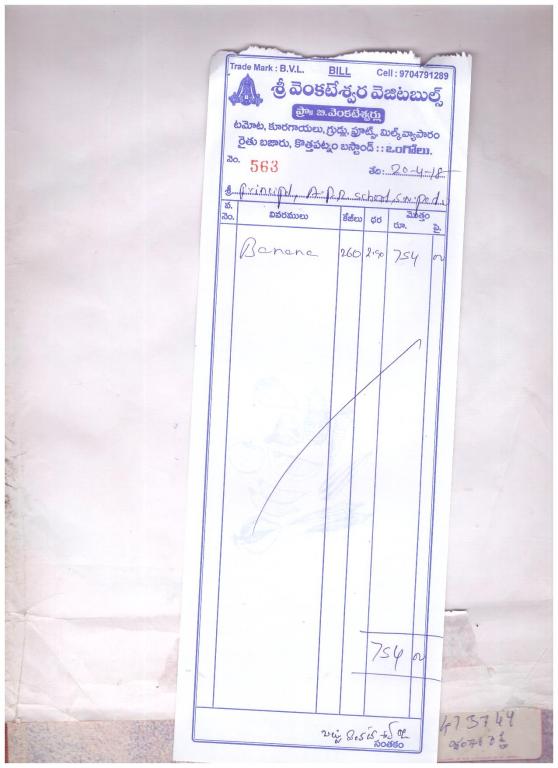 Trade Mark : B.V.L. BILL Cell : 9704791289
శ్రీ వెంకటేశ్వర వెజిటబుల్స్
ప్రొః జి.వెంకటేశ్వర్లు
టమోట, కూరగాయలు, గ్రుడ్లు, ఫ్రూట్స్, మిల్క్ వ్యాపారం
రైతు బజారు, కొత్తపట్నం బస్టాండ్ :: ఒంగోలు.
నెం. 563 తేది: 20-4-18
శ్రీ Principal, A.P.R. School,
వ. నెం. వివరములు కేజీలు ధర మొత్తం రూ. పై.
Banana 260 2.90 754 00
754 00
సంతకం